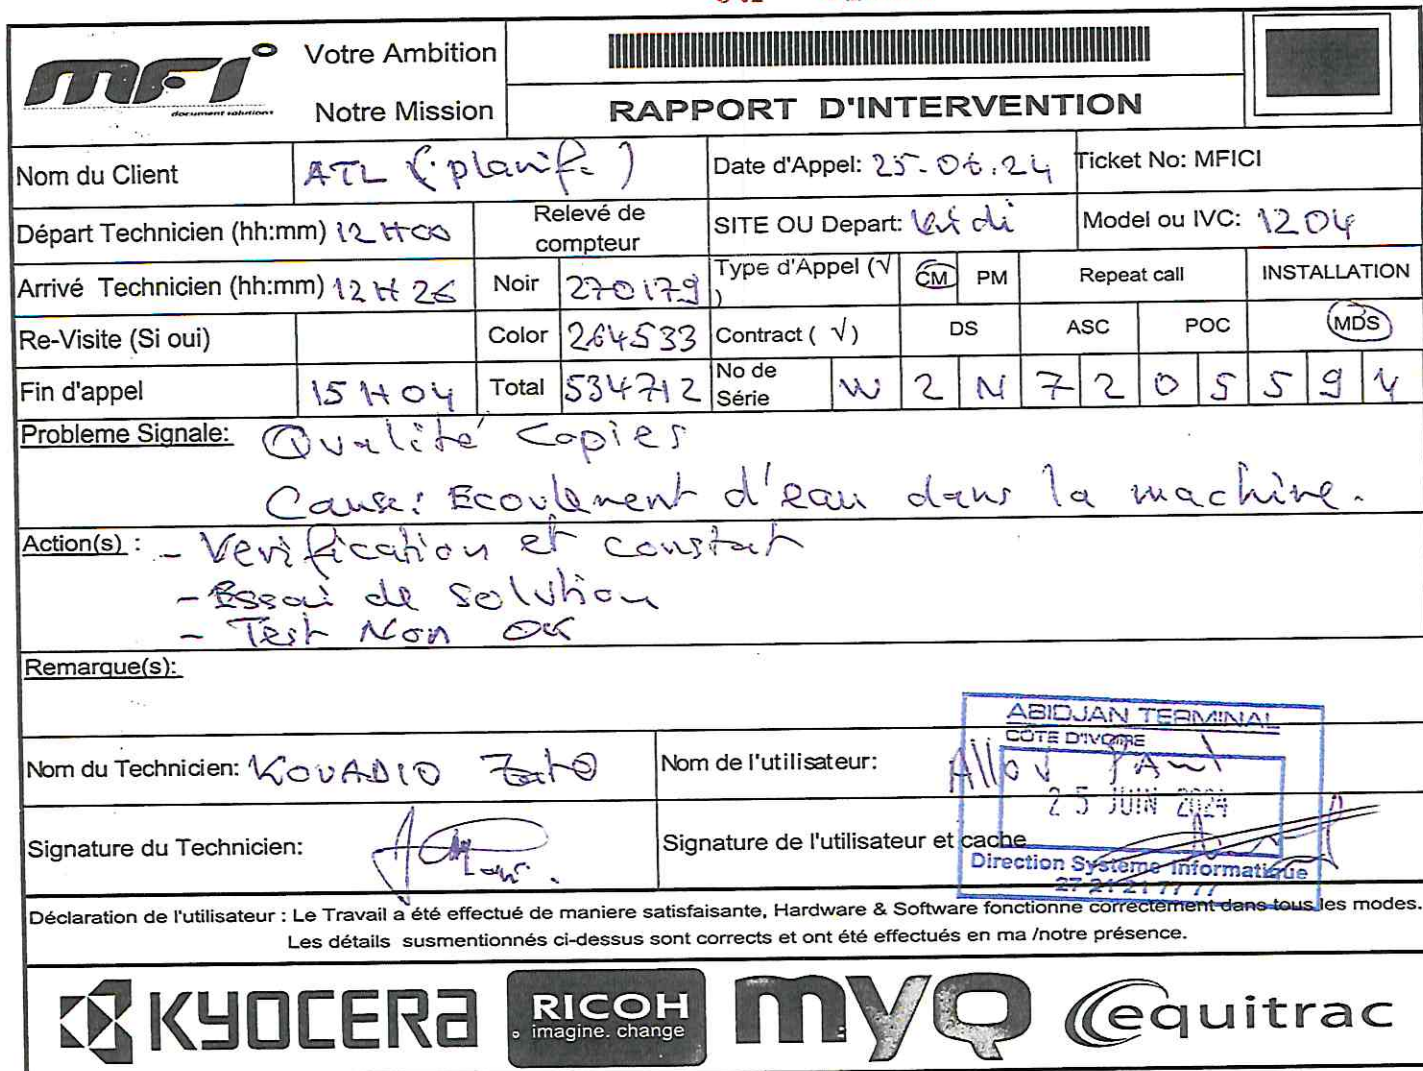 MFI
document solutions
Votre Ambition
Notre Mission
RAPPORT D'INTERVENTION
Nom du Client ATL (planif.) Date d'Appel: 25.06.24 Ticket No: MFICI
Départ Technicien (hh:mm) 12H00 Relevé de compteur SITE OU Depart: Vridi Model ou IVC: 1204
Arrivé Technicien (hh:mm) 12H26 Noir 270179 Type d'Appel (√) CM PM Repeat call INSTALLATION
Re-Visite (Si oui) Color 264533 Contract ( √) DS ASC POC MDS
Fin d'appel 15H04 Total 534712 No de Série W 2 N 7 2 0 5 5 9 4
Probleme Signale: Qualité Copies
Cause: Ecoulement d'eau dans la machine.
Action(s) : - Verification et constat
- Essai de solution
- Test Non OK
Remarque(s):
ABIDJAN TERMINAL
CÔTE D'IVOIRE
Nom du Technicien: KOUADIO Nom de l'utilisateur: Allou Paul
25 JUIN 2024
Signature du Technicien: Signature de l'utilisateur et cache
Direction Système Informatique
27 21 21 77 77
Déclaration de l'utilisateur : Le Travail a été effectué de maniere satisfaisante, Hardware & Software fonctionne correctement dans tous les modes.
Les détails susmentionnés ci-dessus sont corrects et ont été effectués en ma /notre présence.
KYOCERA RICOH imagine. change myQ equitrac